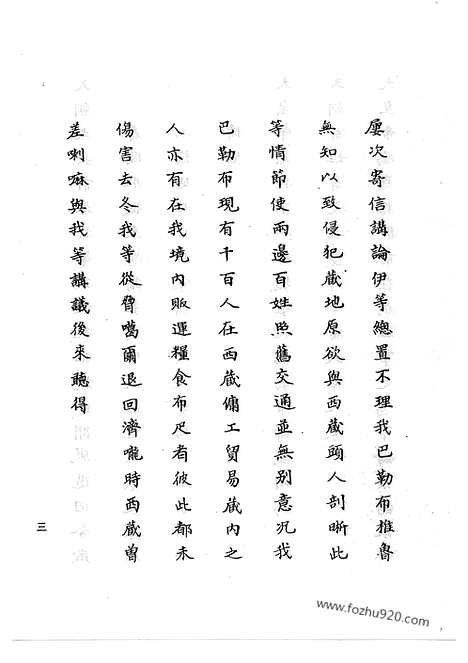 屢次寄信講論伊等總置不理我巴勒布推魯
無知以致侵犯藏地原欲與西藏頭人剖晰此
等情節使兩邊百姓照舊交通並無别意况我
巴勒布現有千百人在西藏傭工貿易藏内之
人亦有在我境内販運糧食布疋者彼此都未
傷害去冬我等從脅噶爾退回濟嚨時西藏曾
差喇嘛與我等講議後來聽得
三
www.fozhu920.com